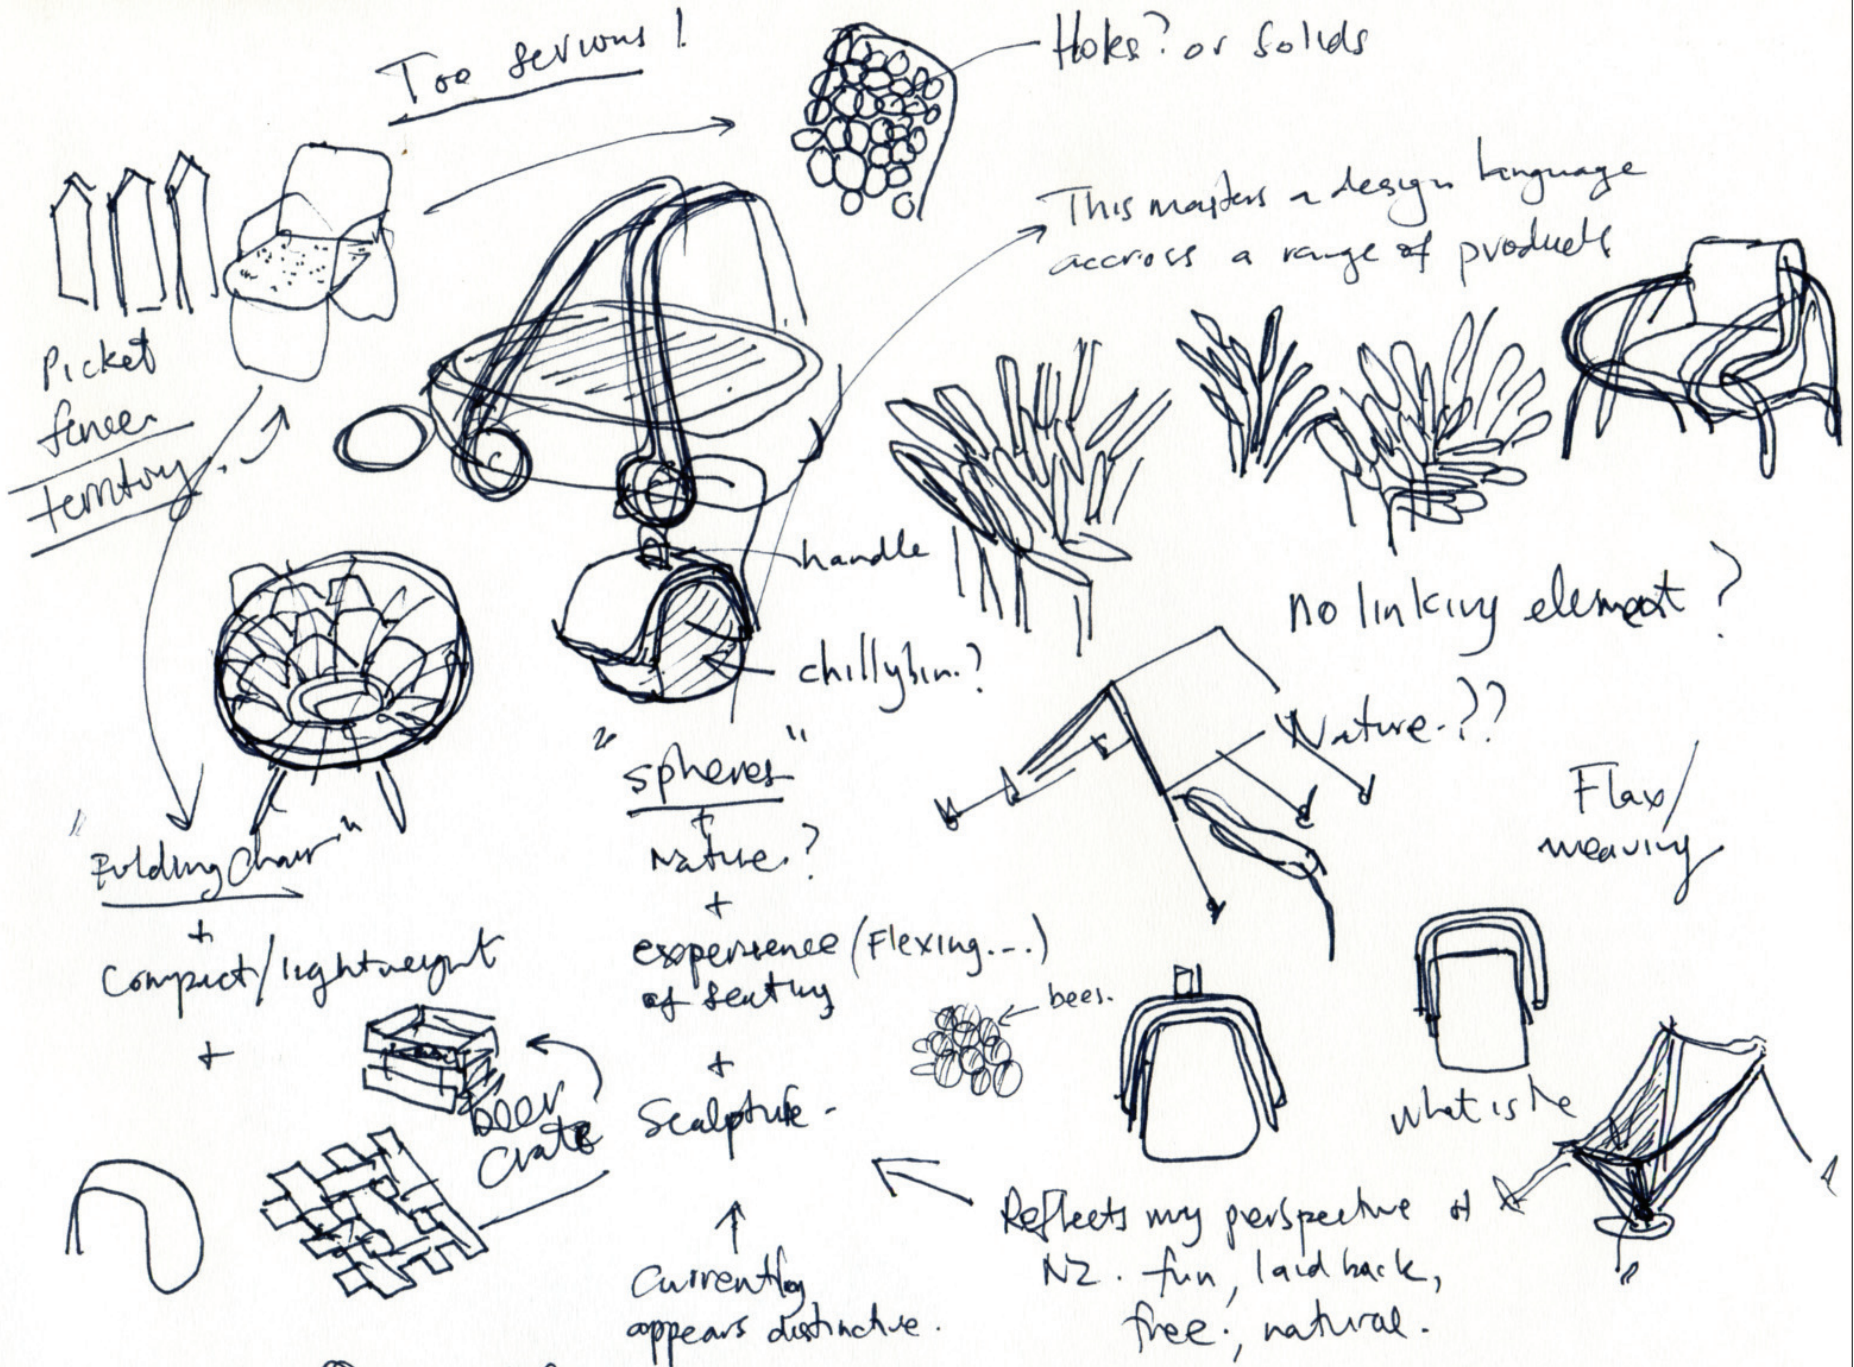 Too serious!
Holes? or Solids
This masters a design language
accross a range of products
Picket
fence
territory
handle
chillybin.?
no linking element?
Nature.??
Flax/
weaving
"Folding Chair"
+
Compact/lightweight
+
"spheres"
+
Nature.?
+
experience (Flexing...)
of seating
+
Scalpture -
bees.
Beer
Crate
what is he
Currently
appears distinctive.
Reflects my perspective of
NZ. fun, laid back,
free., natural.